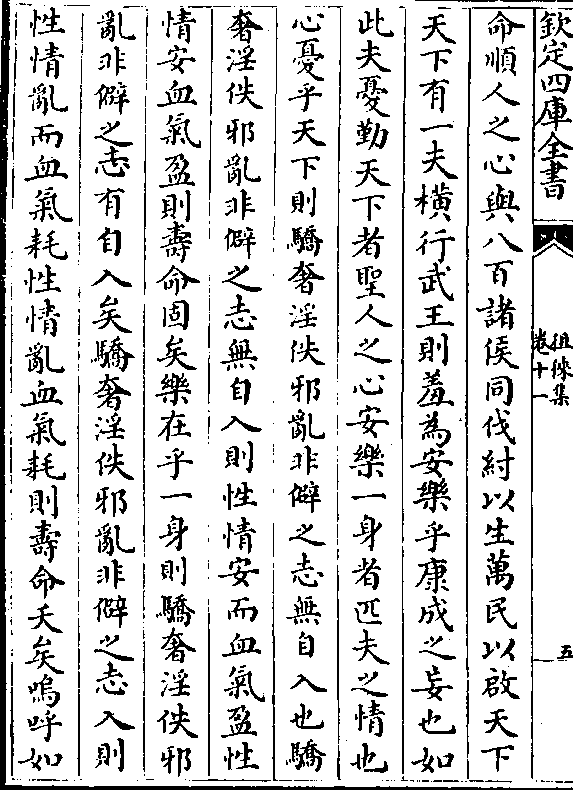 欽定四庫全書
徂徠集
卷十一
五
命順人之心與八百諸侯同伐紂以生萬民以啟天下
天下有一夫橫行武王則羞為安樂乎康成之妄也如
此夫憂勤天下者聖人之心安樂一身者匹夫之情也
心憂乎天下則驕奢淫佚邪亂非僻之志無自入也驕
奢淫佚邪亂非僻之志無自入則性情安而血氣盈性
情安血氣盈則壽命固矣樂在乎一身則驕奢淫佚邪
亂非僻之志有自入矣驕奢淫佚邪亂非僻之志入則
性情亂而血氣耗性情亂血氣耗則壽命夭矣嗚呼如